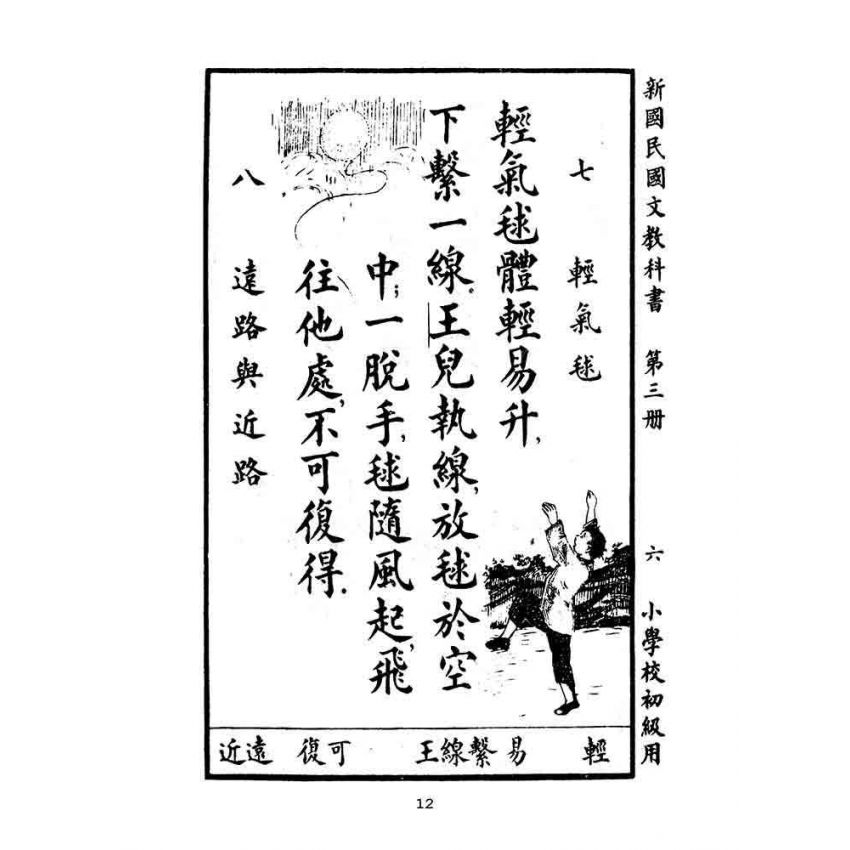 新國民國文教科書　第三册　六　小學校初級用
七　輕氣毬
輕氣毬體輕易升,
下繫一線.王兒執線,放毬於空
中;一脫手,毬隨風起,飛
往他處,不可復得.
八　遠路與近路
輕　易　繫線王　可復　遠近
12